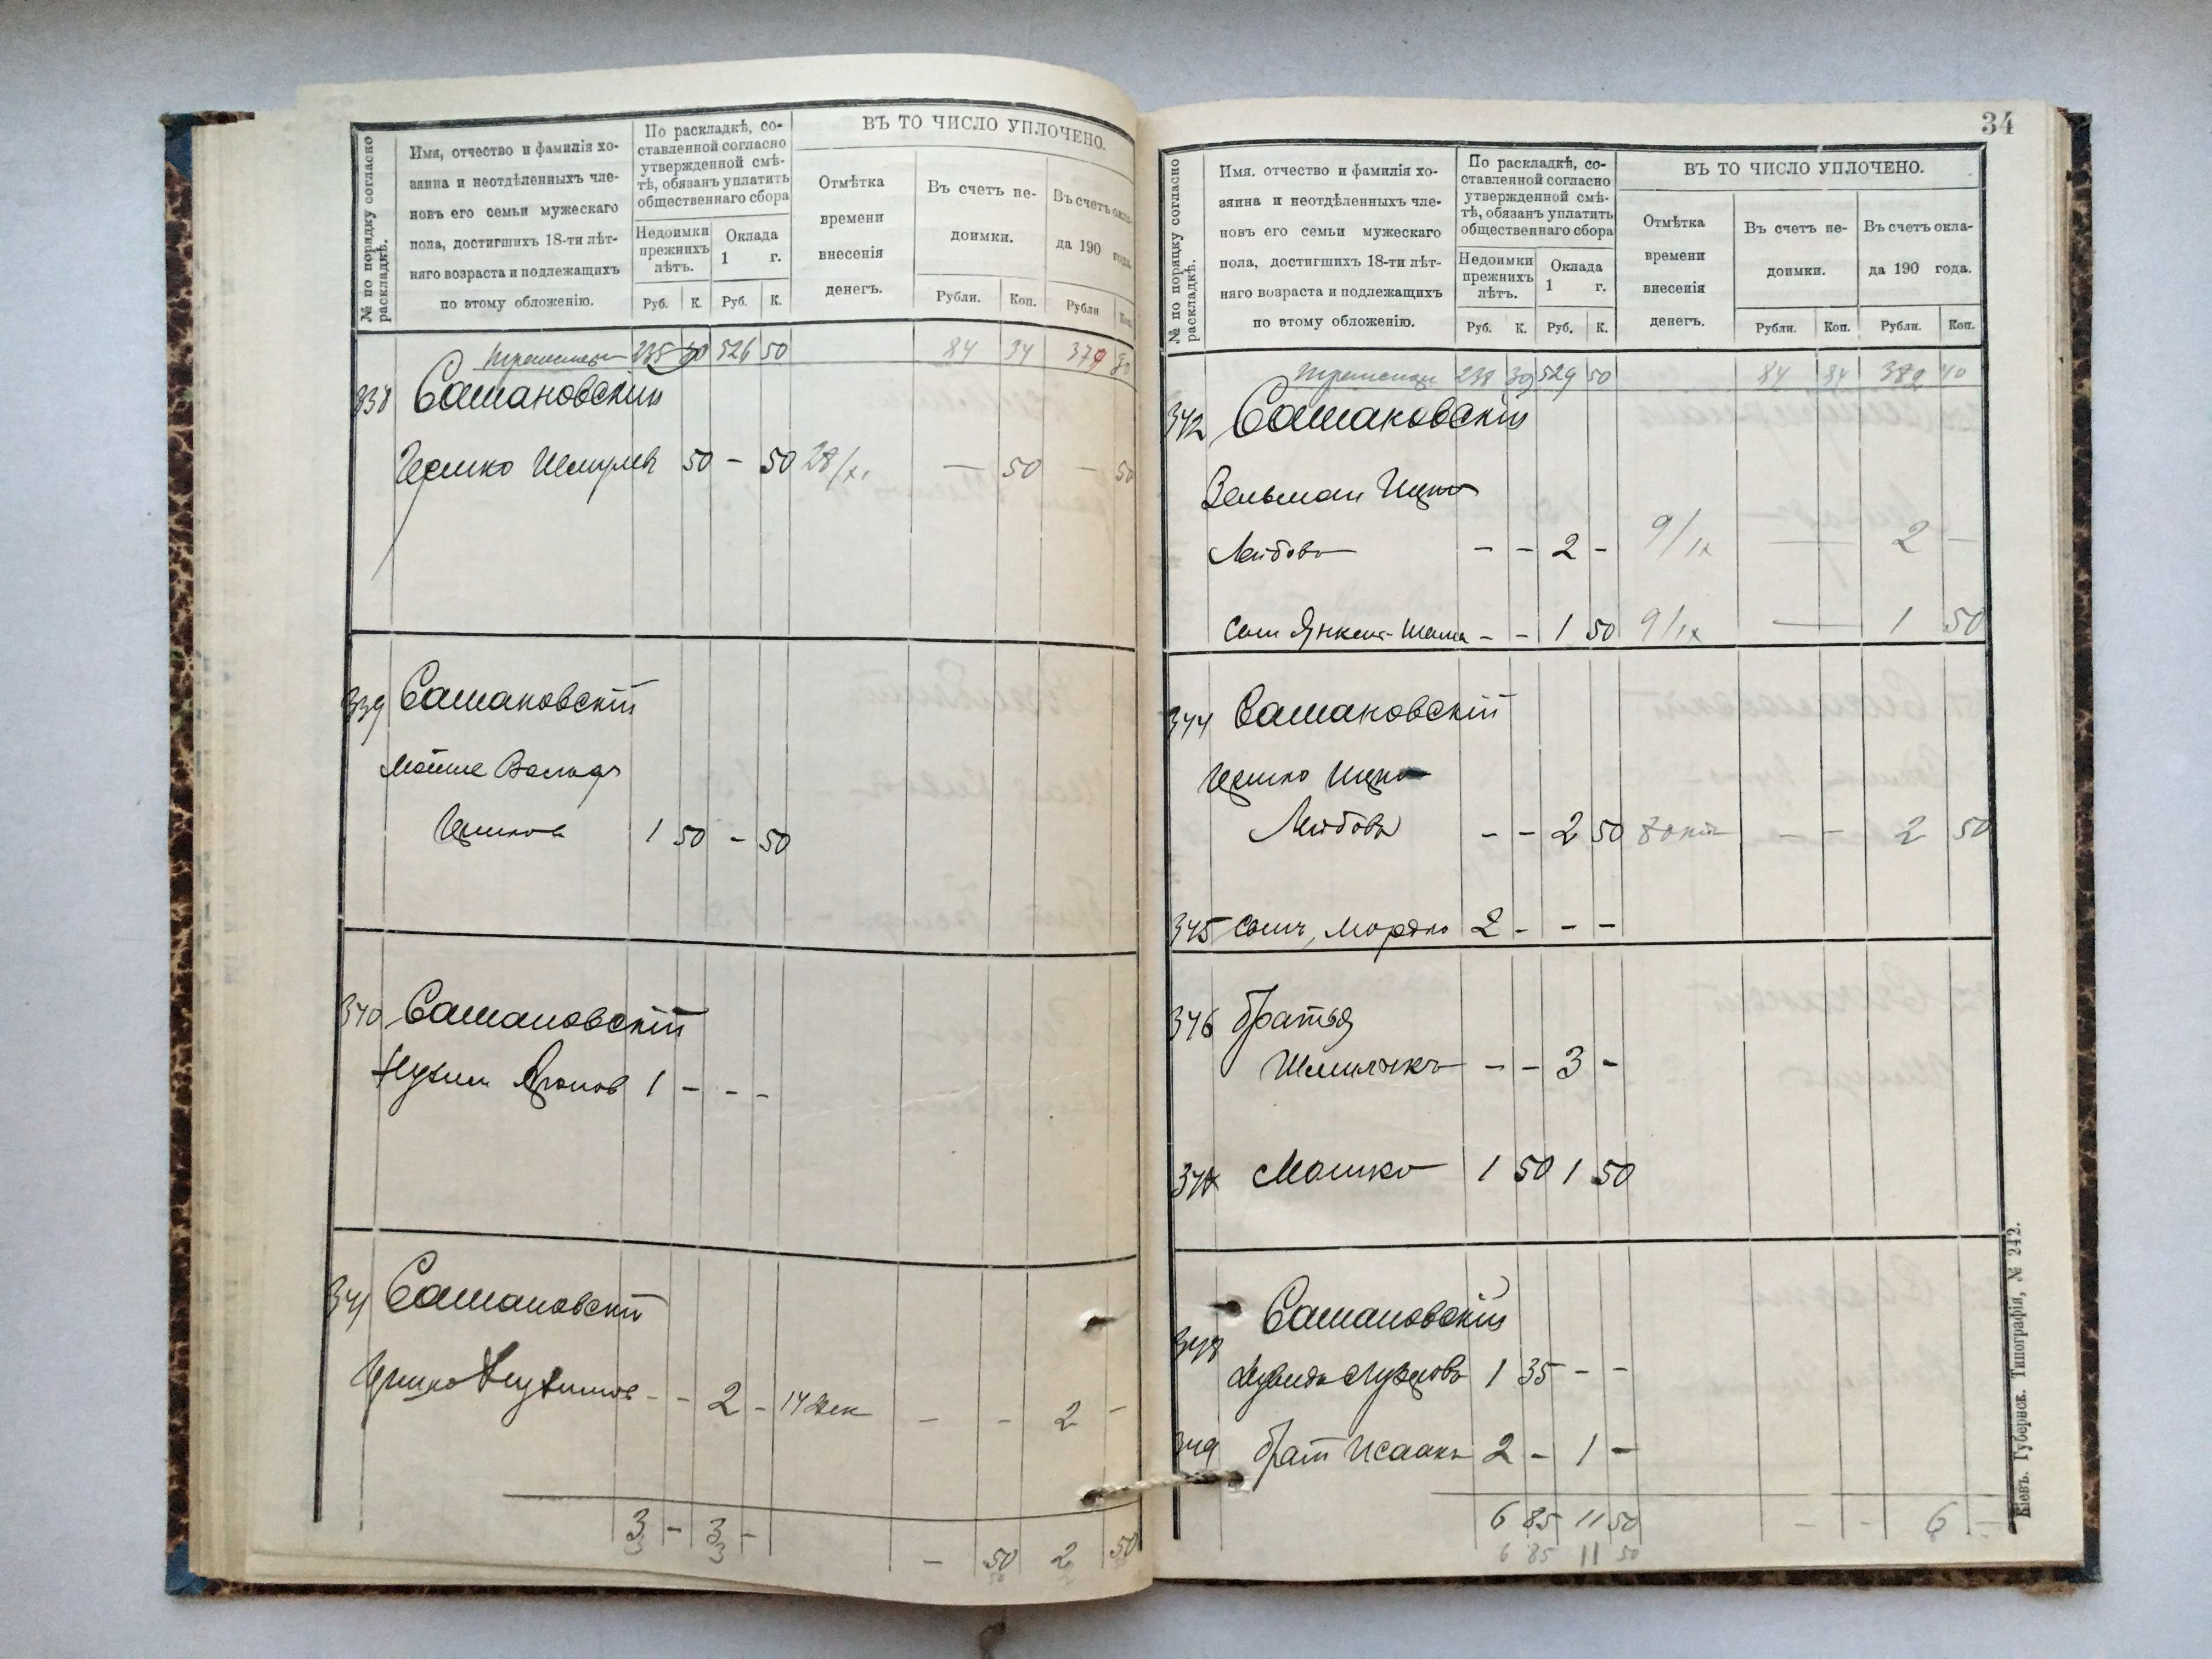 № по порядку согласно раскладкѣ.
Имя, отчество и фамилія хо-
зяина и неотдѣленныхъ чле-
новъ его семьи мужескаго
пола, достигшихъ 18-ти лѣт-
няго возраста и подлежащихъ
по этому обложенію.
По раскладкѣ, со-
ставленной согласно
утвержденной смѣ-
тѣ, обязанъ уплатить
общественнаго сбора
Недоимки прежнихъ лѣтъ.
Оклада 1 г.
Руб. К. Руб. К.
ВЪ ТО ЧИСЛО УПЛОЧЕНО.
Отмѣтка
времени
внесенія
денегъ.
Въ счетъ не-
доимки.
Рубли. Коп.
Въ счетъ окла-
да 190 года.
Рубли Коп.
526 50 84 34
338 Сашановскій
Шмулев 50 - 50 28/XI — 50 — 50
339 Сашановскій
Мойше
1 50 - 50
340 Сашановскій
1 - - -
341 Сашановскій
Ицико - - 2 - 14 дек - - 2 -
3 - 3 - - 50 2 50
34
№ по порядку согласно раскладкѣ.
Имя, отчество и фамилія хо-
зяина и неотдѣленныхъ чле-
новъ его семьи мужескаго
пола, достигшихъ 18-ти лѣт-
няго возраста и подлежащихъ
по этому обложенію.
По раскладкѣ, со-
ставленной согласно
утвержденной смѣ-
тѣ, обязанъ уплатить
общественнаго сбора
Недоимки прежнихъ лѣтъ.
Оклада 1 г.
Руб. К. Руб. К.
ВЪ ТО ЧИСЛО УПЛОЧЕНО.
Отмѣтка
времени
внесенія
денегъ.
Въ счетъ не-
доимки.
Рубли. Коп.
Въ счетъ окла-
да 190 года.
Рубли. Коп.
238 39 529 50 84 84 382 40
342 Сашановскій
Зельман Ицко
Лейбовъ - - 2 - 9/IX — 2 —
сын Янкель - - 1 50 9/IX — 1 50
344 Сашановскій
Ицко
Лейбовъ - - 2 50 8 окт - - 2 50
345 сынъ, Мордко 2 - - -
346 братья
- - 3 -
347 Мошко 1 50 1 50
348 Сашановскій
1 35 - -
349 брат Исаакъ 2 - 1 -
6 85 11 50 - - 6 —
6 85 11 50
Кіевъ. Губернск. Типографія, № 242.